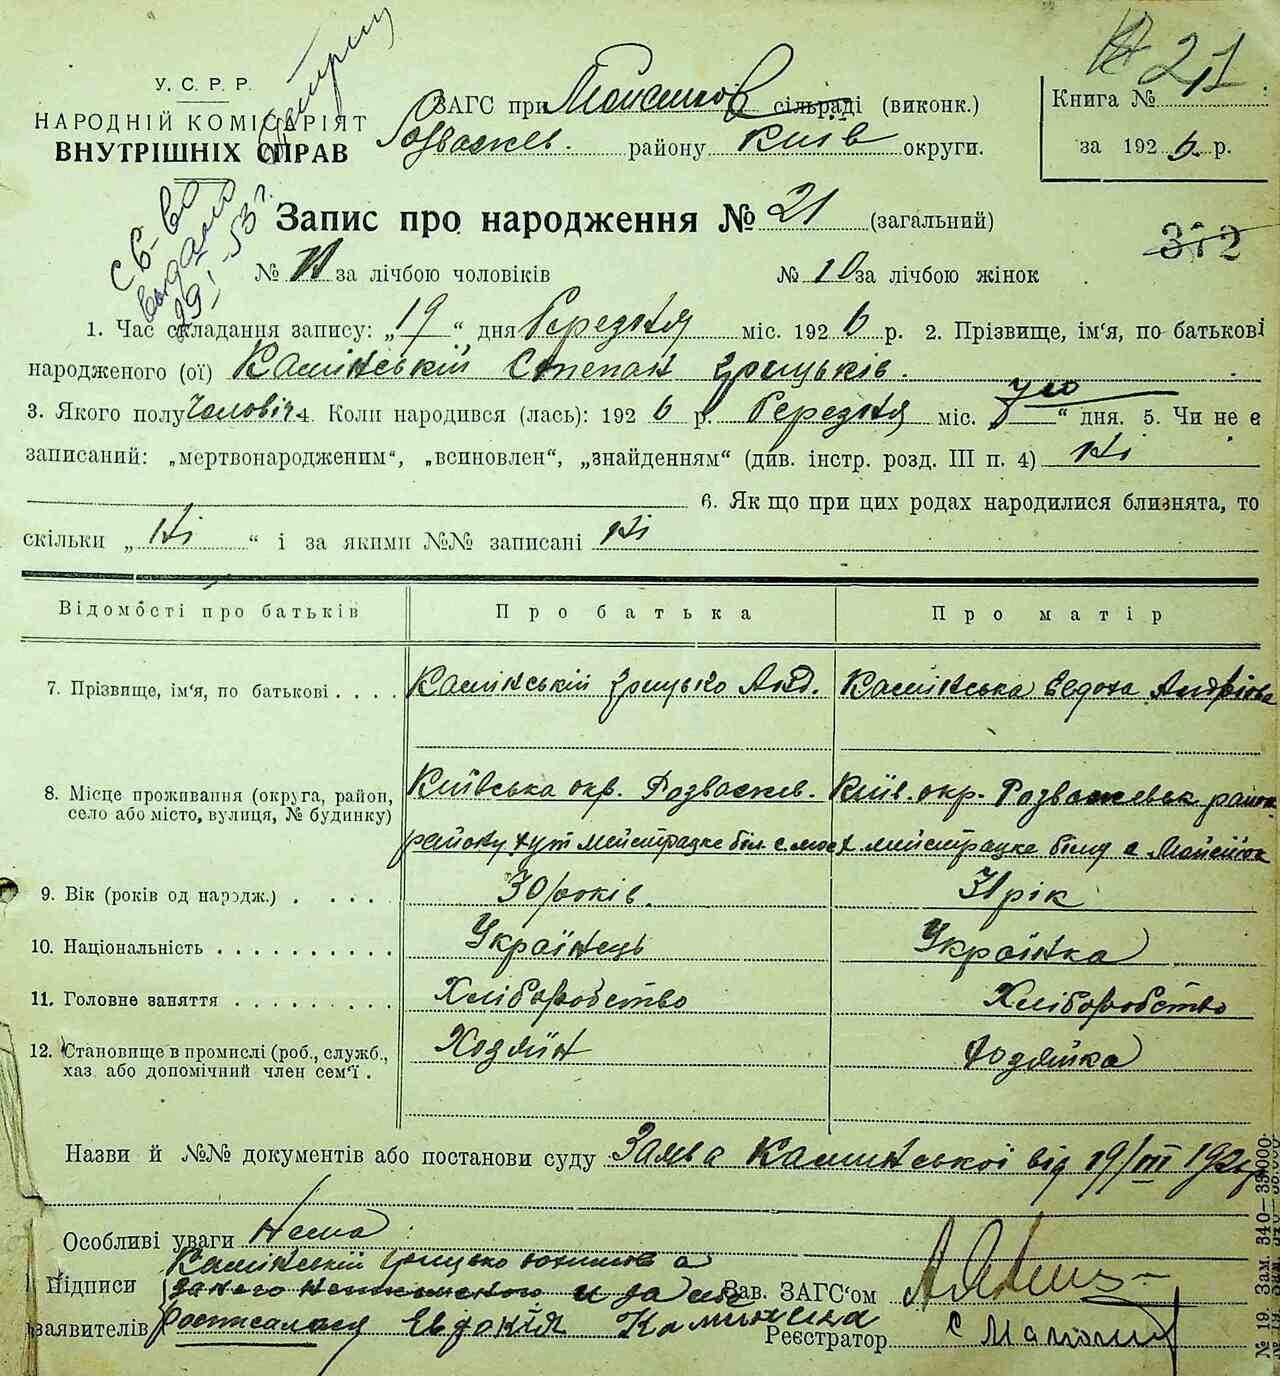 21
У. С. Р. Р.
НАРОДНІЙ КОМІСАРІЯТ
ВНУТРІШНІХ СПРАВ
ЗАГС при сільраді (виконк.)
Розважев. району Київ округи.
Книга №
за 1926 р.
Св-во
выдано
29/I-53 г.
Запис про народження № 21 (загальний)
372
№ 11 за лічбою чоловіків № 10 за лічбою жінок
1. Час складання запису: „19“ дня Березня міс. 1926 р. 2. Прізвище, ім'я, по батькові
народженого (ої) Камінський Степан Грицьків.
3. Якого полу Чоловіч 4. Коли народився (лась): 1926 р. Березня міс. 7го “ дня. 5. Чи не є
записаний: „мертвонародженим“, „всиновлен“, „знайденням“ (див. інстр. розд. III п. 4) Ні
6. Як що при цих родах народилися близнята, то
скільки „Ні“ і за якими №№ записані Ні
Відомості про батьків Про батька Про матір
7. Прізвище, ім'я, по батькові . . . . Камінській Грицько Анд. Камінська Євдоха Андріова
8. Місце проживання (округа, район, село або місто, вулиця, № будинку) Київська окр. Розважев. Київ. окр. Розважевск. район
району хут Майстрацке біл. с. х майстрацке біля с
9. Вік (років од народж.) . . . . 30 років. 31 рік
10. Національність . . . . . . . . . . Українець Українка
11. Головне заняття . . . . . . . . . Хліборобство Хліборобство
12. Становище в промислі (роб., служб., хаз. або допомічний член сем'ї . Хозяїн Хозяйка
Назви й №№ документів або постанови суду Заява Камінської від 19/III 192
Особливі уваги Нема
Підписи Камінський Грицько а
за него неписьменного и за себе Зав. ЗАГС'ом
заявителів росписалася Евдокія Каминска Реєстратор
№ 19. Зам. 340—33.000.